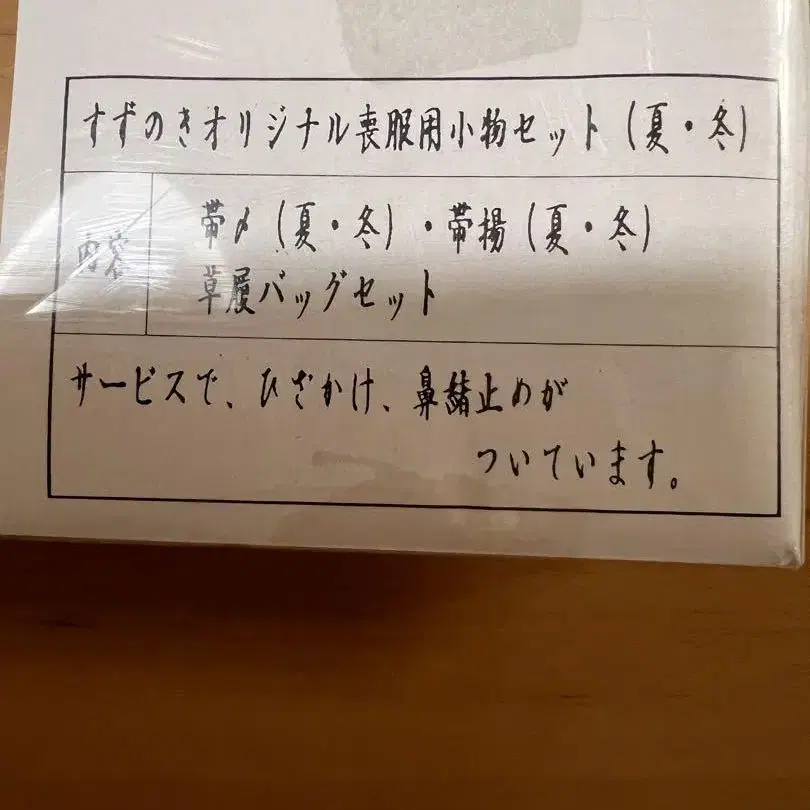 すずのきオリジナル喪服用小物セット(夏・冬)
内容
帯〆(夏・冬)・帯揚(夏・冬)
草履バッグセット
サービスで、ひざかけ、鼻緒止めが
ついています。